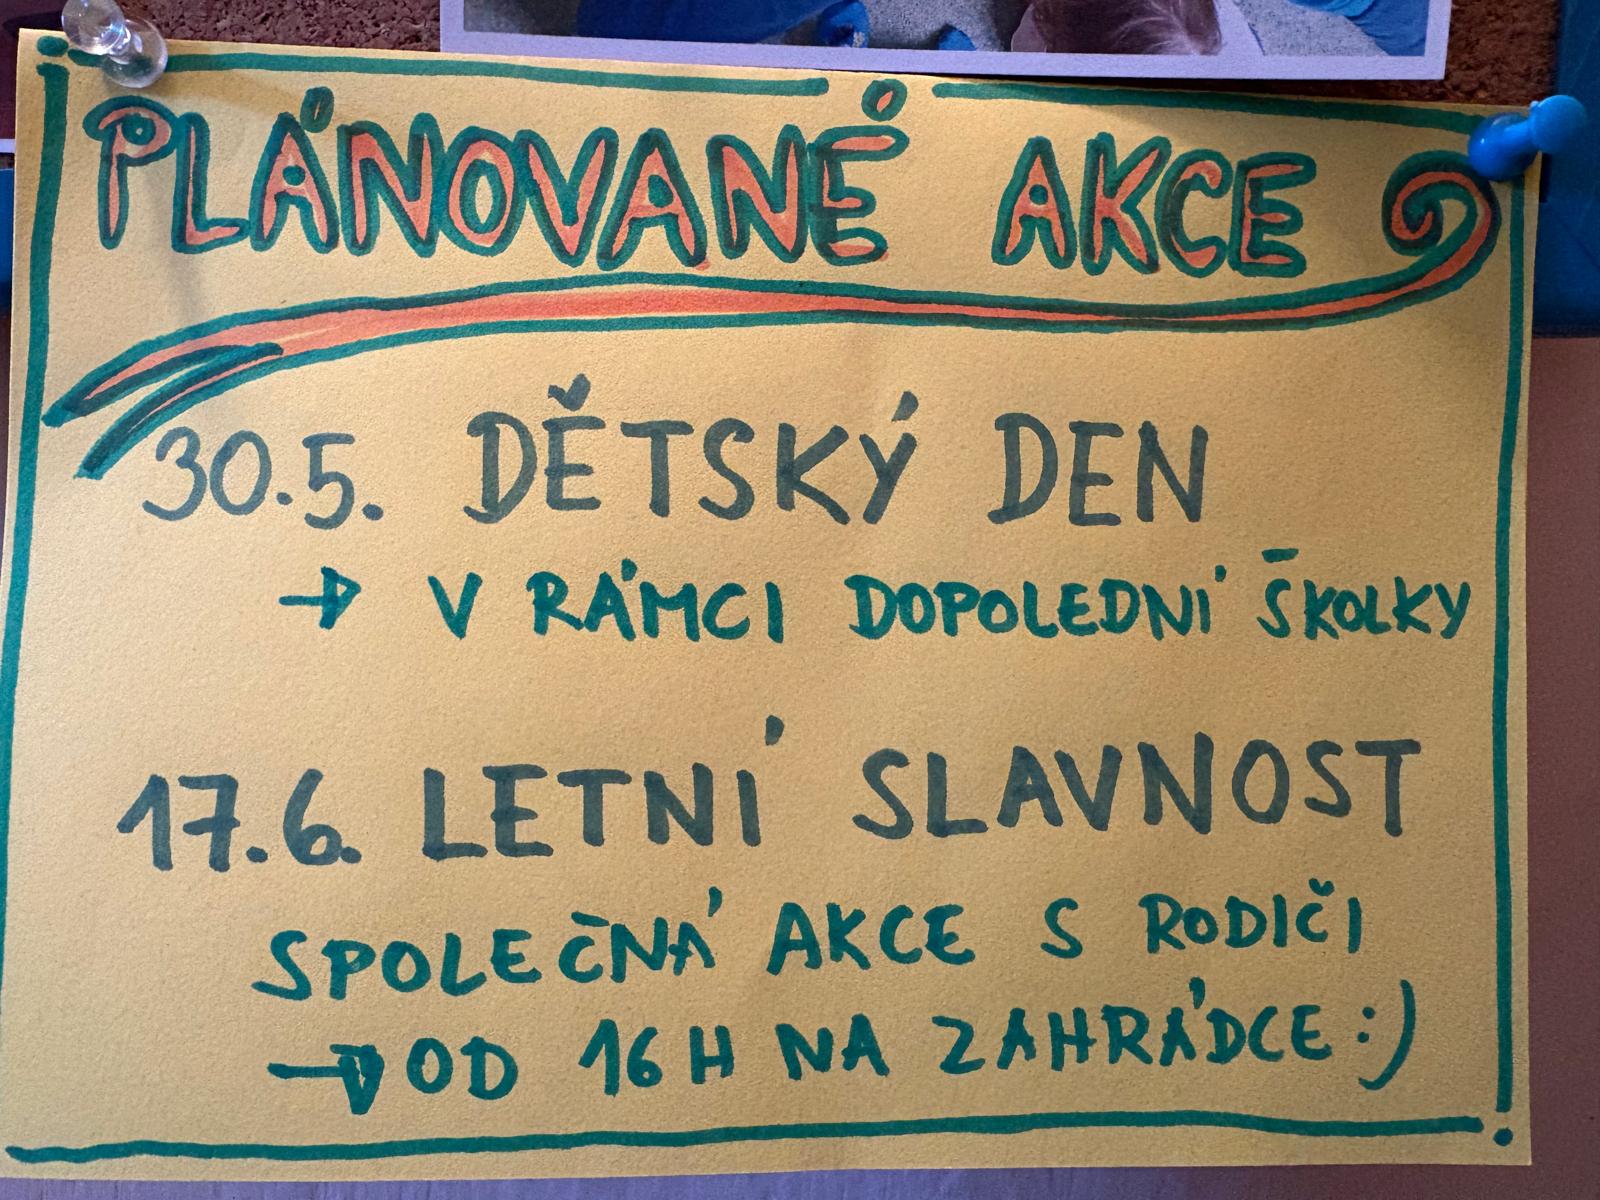 PLÁNOVANÉ AKCE
30.5. DĚTSKÝ DEN
→ V RÁMCI DOPOLEDNÍ ŠKOLKY
17.6. LETNÍ SLAVNOST
SPOLEČNÁ AKCE S RODIČI
→ OD 16H NA ZAHRÁDCE :)